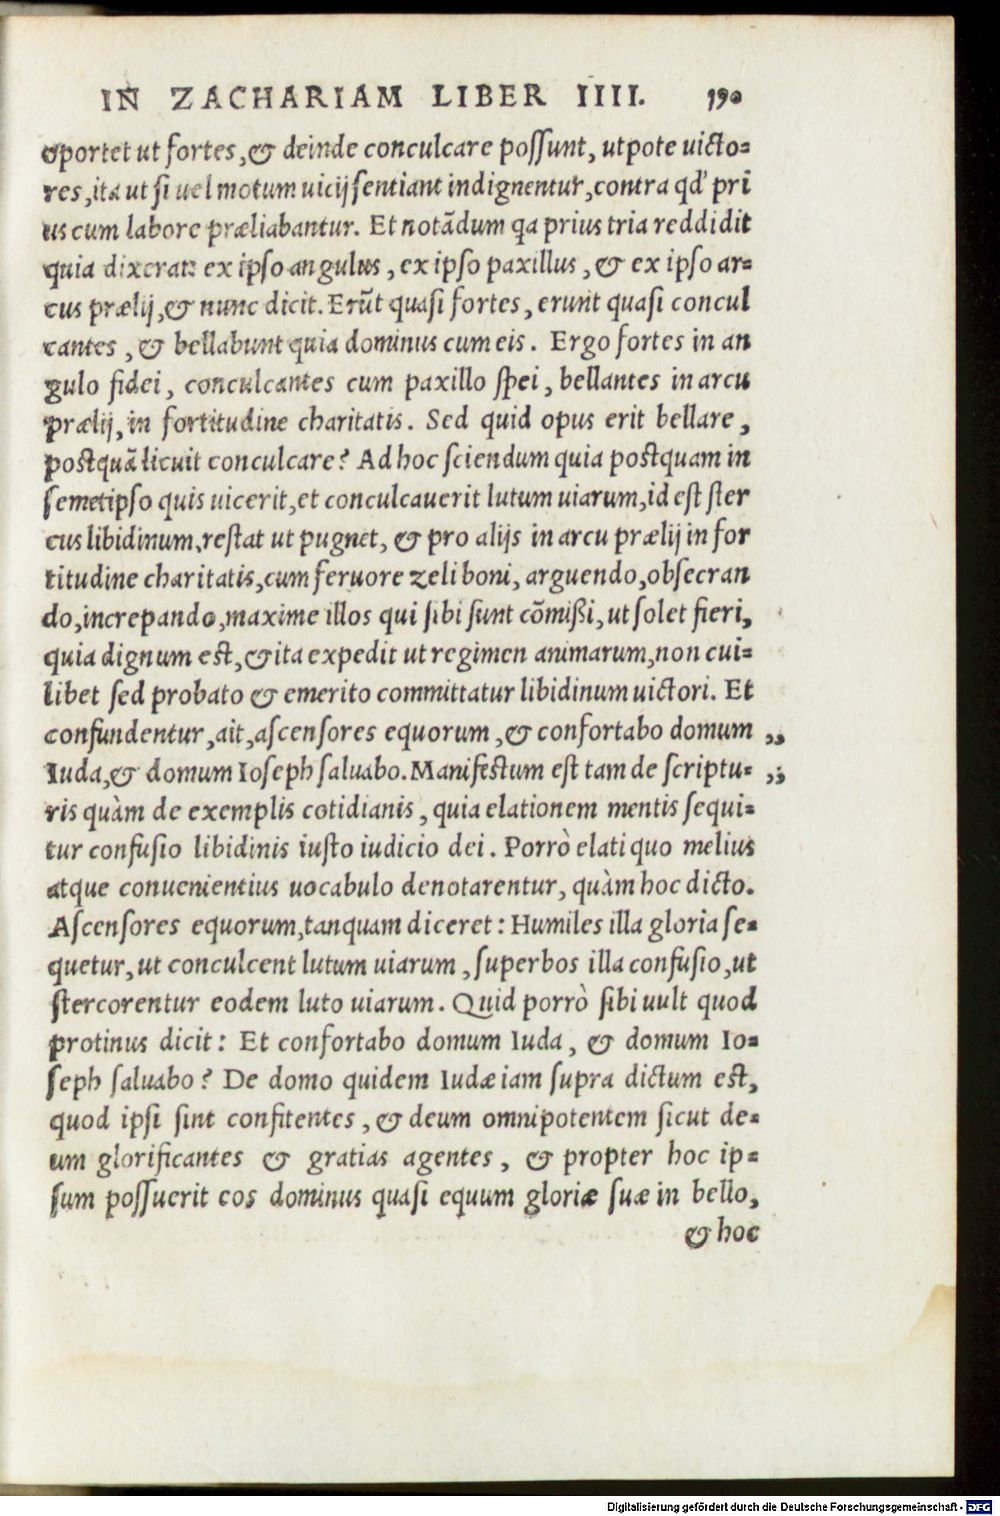 IN ZACHARIAM LIBER IIII. 190
oportet ut fortes, & deinde conculcare possunt, utpote uicto=
res, ita ut si uel motum uicij sentiant indignentur, contra qd' pri
us cum labore præliabantur. Et notādum qa prius tria reddidit
quia dixerat: ex ipso angulus, ex ipso paxillus, & ex ipso ar=
cus prælij, & nunc dicit. Erūt quasi fortes, erunt quasi concul
cantes, & bellabunt quia dominus cum eis. Ergo fortes in an
gulo fidei, conculcantes cum paxillo spei, bellantes in arcu
prælij, in fortitudine charitatis. Sed quid opus erit bellare,
postquā licuit conculcare? Ad hoc sciendum quia postquam in
semetipso quis uicerit, et conculcauerit lutum uiarum, id est ster
cus libidinum, restat ut pugnet, & pro alijs in arcu prælij in for
titudine charitatis, cum feruore zeli boni, arguendo, obsecran
do, increpando, maxime illos qui sibi sunt cōmißi, ut solet fieri,
quia dignum est, & ita expedit ut regimen animarum, non cui=
libet sed probato & emerito committatur libidinum uictori. Et
confundentur, ait, ascensores equorum, & confortabo domum „
Iuda, & domum Ioseph saluabo. Manifestum est tam de scriptu= „
ris quàm de exemplis cotidianis, quia elationem mentis sequi=
tur confusio libidinis iusto iudicio dei. Porrò elati quo melius
atque conuenientius uocabulo denotarentur, quàm hoc dicto.
Ascensores equorum, tanquam diceret: Humiles illa gloria se=
quetur, ut conculcent lutum uiarum, superbos illa confusio, ut
stercorentur eodem luto uiarum. Quid porrò sibi uult quod
protinus dicit: Et confortabo domum Iuda, & domum Io=
seph saluabo? De domo quidem Iudæ iam supra dictum est,
quod ipsi sint confitentes, & deum omnipotentem sicut de=
um glorificantes & gratias agentes, & propter hoc ip=
sum possuerit eos dominus quasi equum gloriæ suæ in bello,
& hoc
Digitalisierung gefördert durch die Deutsche Forschungsgemeinschaft - DFG